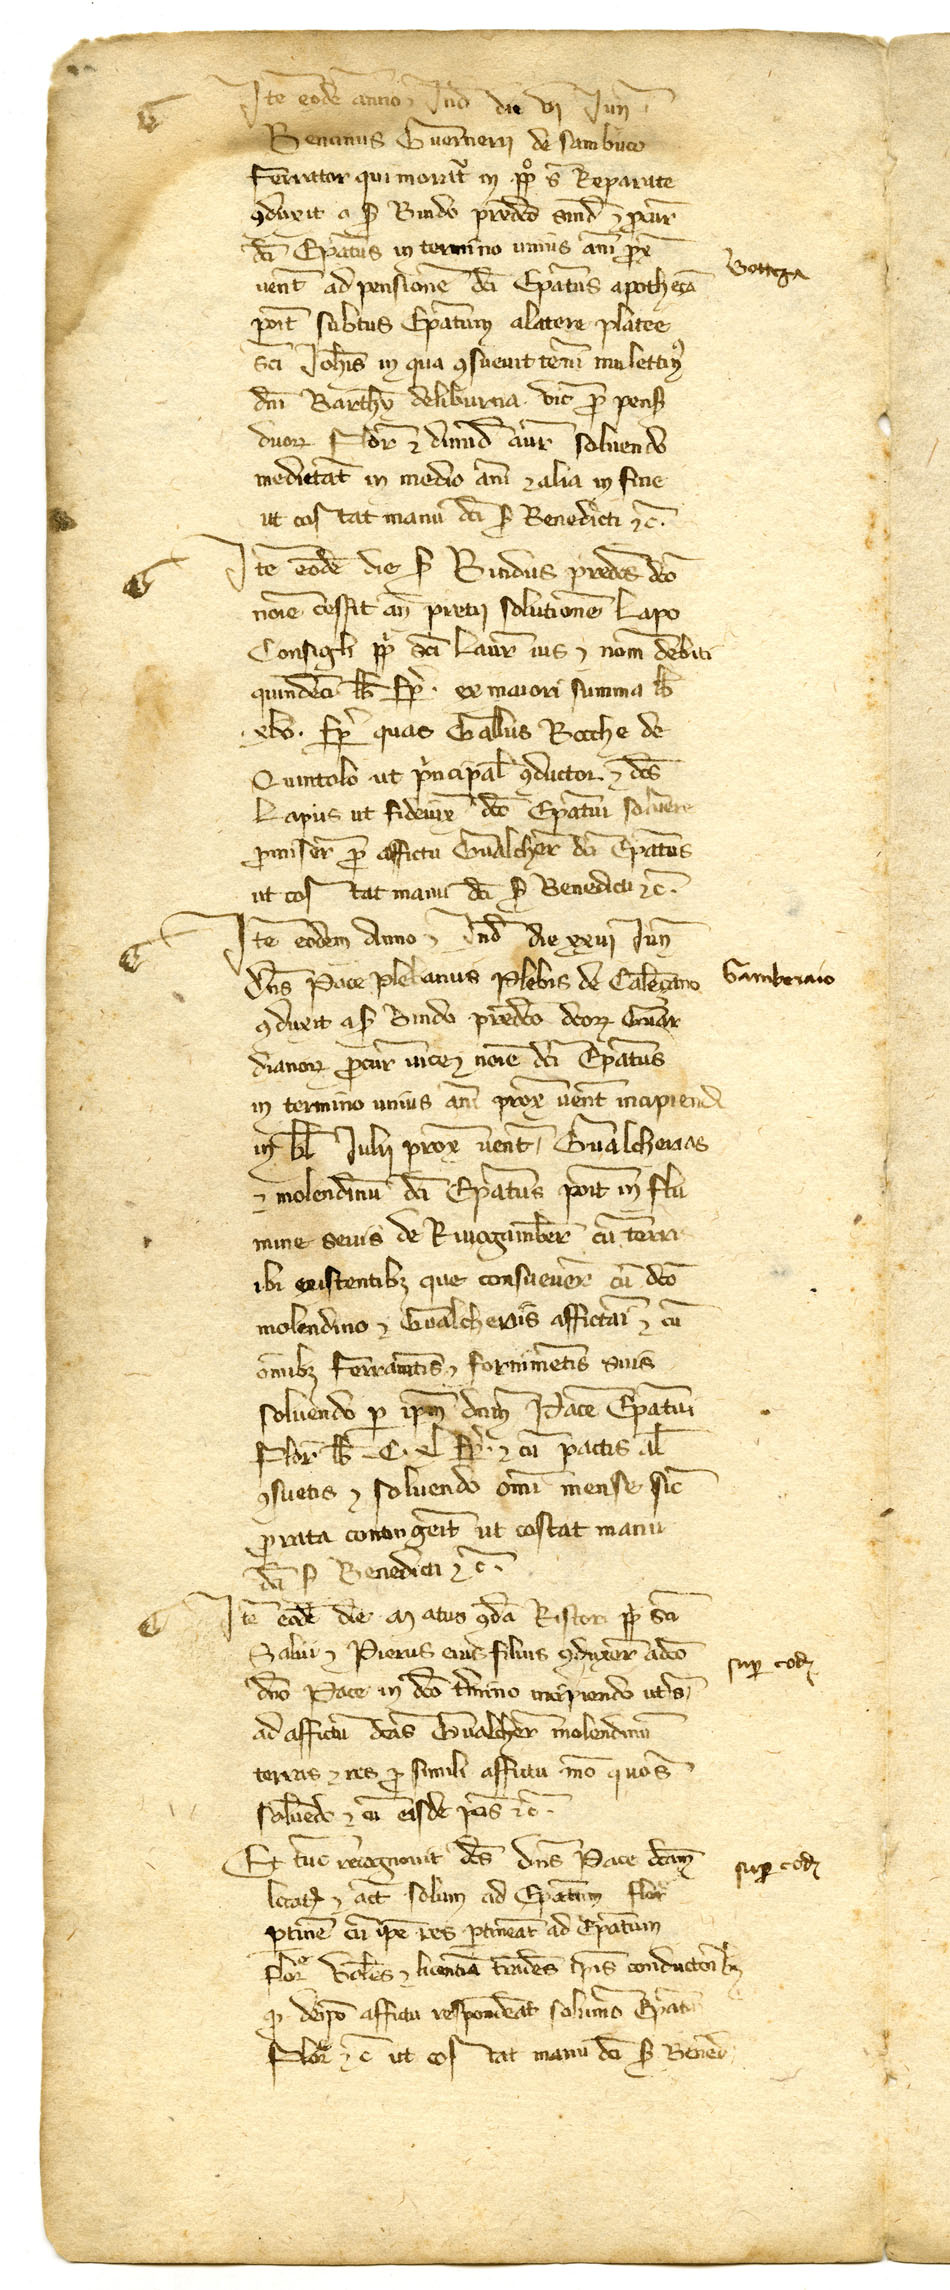 Ite eode anno, Ind die vj Jun
Bencinus Guernerij de Sambuco
Ferrator qui morat in ppo s Reparate
9duxit a s Bindo predco sind 7 pcur
dci Epatus in termino unius anni prox
vent ad pensione dci Epatus apothecā
Bottega
poit subtus Epatum alatere platee
sci Johis in qua 9suevit teni mulettus
dni Barthi deliburna vic p pens
duor Flor 7 dimid aur solvendo
medietat in medio anni 7 alia in fine
ut cos tat manu dci s Benedicti 7c.
Ite eode die s Bindus predcs dco
noie cessit an pretij solutione Lapo
Consigli pp sci Laur ius 7 nom debiti
quindeci lb fp. ex maiori summa lb
xlv. fp quas Gallus Rocche de
Quintolo ut principal 9ductor 7 dcs
Lapus ut fideiux dco Epatui solvere
promiser p affictu Gualcher dci Epatus
ut cos tat manu dci s Benedicti 7c.
Ite eodem Anno 7 Ind die xxvj Jun
Dns Pace plebanus Plebis de Calēçano
Gamberaio
9duxit a s Bindo predco dcor Guar
dianor pcur vice 7 noie dci Epatus
in termino unius anni prox vent incipiend
in kl Julij prox vent, Gualcherias
7 molendinu dci Epatus poit in flu
mine sevis de Rivogamber cu terris
ibi existentib que consuever cu dco
molendino 7 Gualcheriis affictari 7 cu
omib ferramtis 7 fornimetis suis
solvendo p ipm dnm Pace Epatui
Flor lb C.L fp. 7 cu pactis al
9suetis 7 solvendo omi mense sic
prata contingerit ut costat manu
dci s Benedicti 7c.
Ite eode die Matus 9da Ristori pp sci
Salvi 7 Pierus eius filius 9duxer adco
super eode
dno Pace in dco termino incipiendo ut s
ad affictu dcas Gualcher molendinu
terras 7 res p simili affictu mo quo s
solvedo 7 cu eisde pctis 7c.
Et tuc recognovit dcs dns Pace dcam
super eode
locat 7 act solum ad Epatum flor
ptine cu ipe res ptineat ad Epatum
flor Voles 7 licentia tradens ipis conductorib
q deipo affictu respondeat solumo Epatui
Flor 7c ut cos tat manu dci s Bened